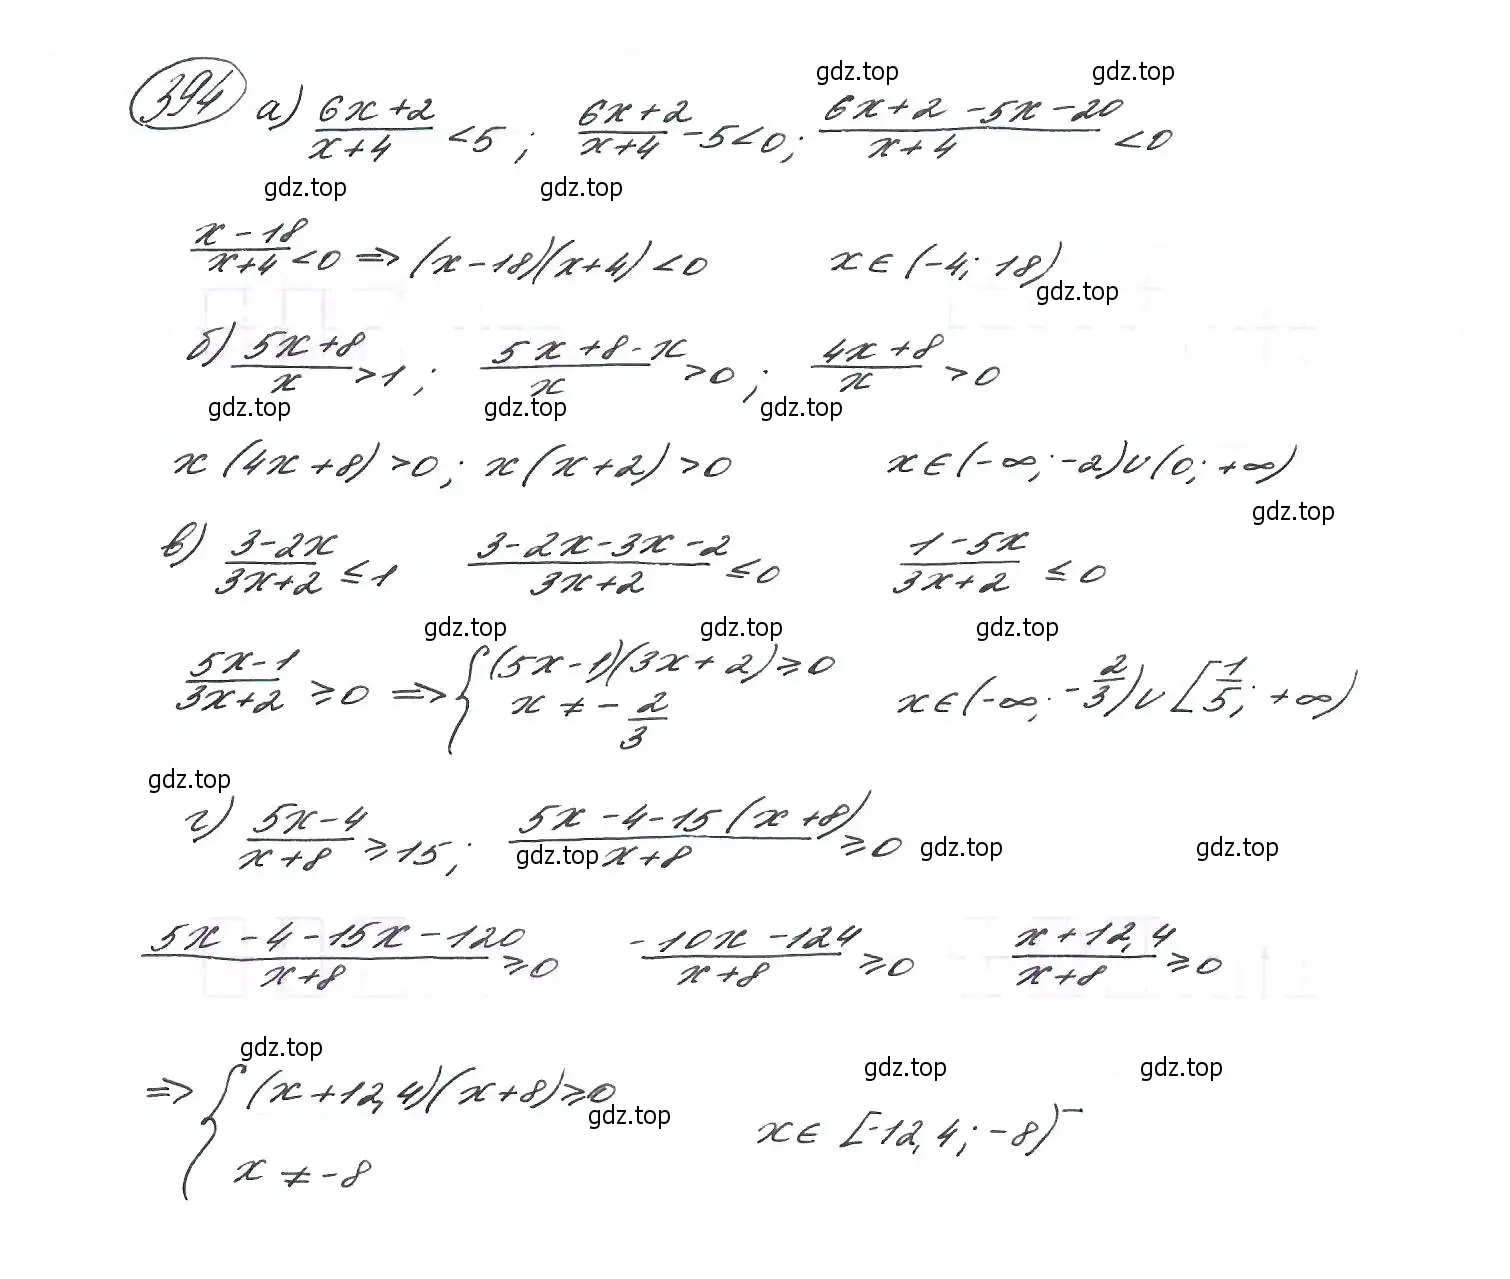 gdz.top gdz.top
394 а) (6x+2)/(x+4) <5 ; (6x+2)/(x+4) -5<0; (6x+2-5x-20)/(x+4) <0
gdz.top gdz.top
(x-18)/(x+4) <0 => (x-18)(x+4)<0 x∈(-4; 18)
gdz.top
б) (5x+8)/x >1 ; (5x+8-x)/x >0 ; (4x+8)/x >0
gdz.top gdz.top gdz.top
x(4x+8)>0; x(x+2)>0 x∈(-∞; -2)∪(0; +∞)
gdz.top
в) (3-2x)/(3x+2) ≤1 (3-2x-3x-2)/(3x+2) ≤0 (1-5x)/(3x+2) ≤0
gdz.top gdz.top gdz.top
(5x-1)/(3x+2) ≥0 => { (5x-1)(3x+2)≥0
x ≠ -2/3 x∈(-∞; -2/3)∪[1/5; +∞)
gdz.top
г) (5x-4)/(x+8) ≥15; (5x-4-15(x+8))/(x+8) ≥0
gdz.top gdz.top gdz.top
(5x-4-15x-120)/(x+8) ≥0 (-10x-124)/(x+8) ≥0 (x+12,4)/(x+8) ≥0
gdz.top gdz.top gdz.top
=> { (x+12,4)(x+8)≥0
gdz.top
x ≠ -8 x∈ [-12,4; -8)